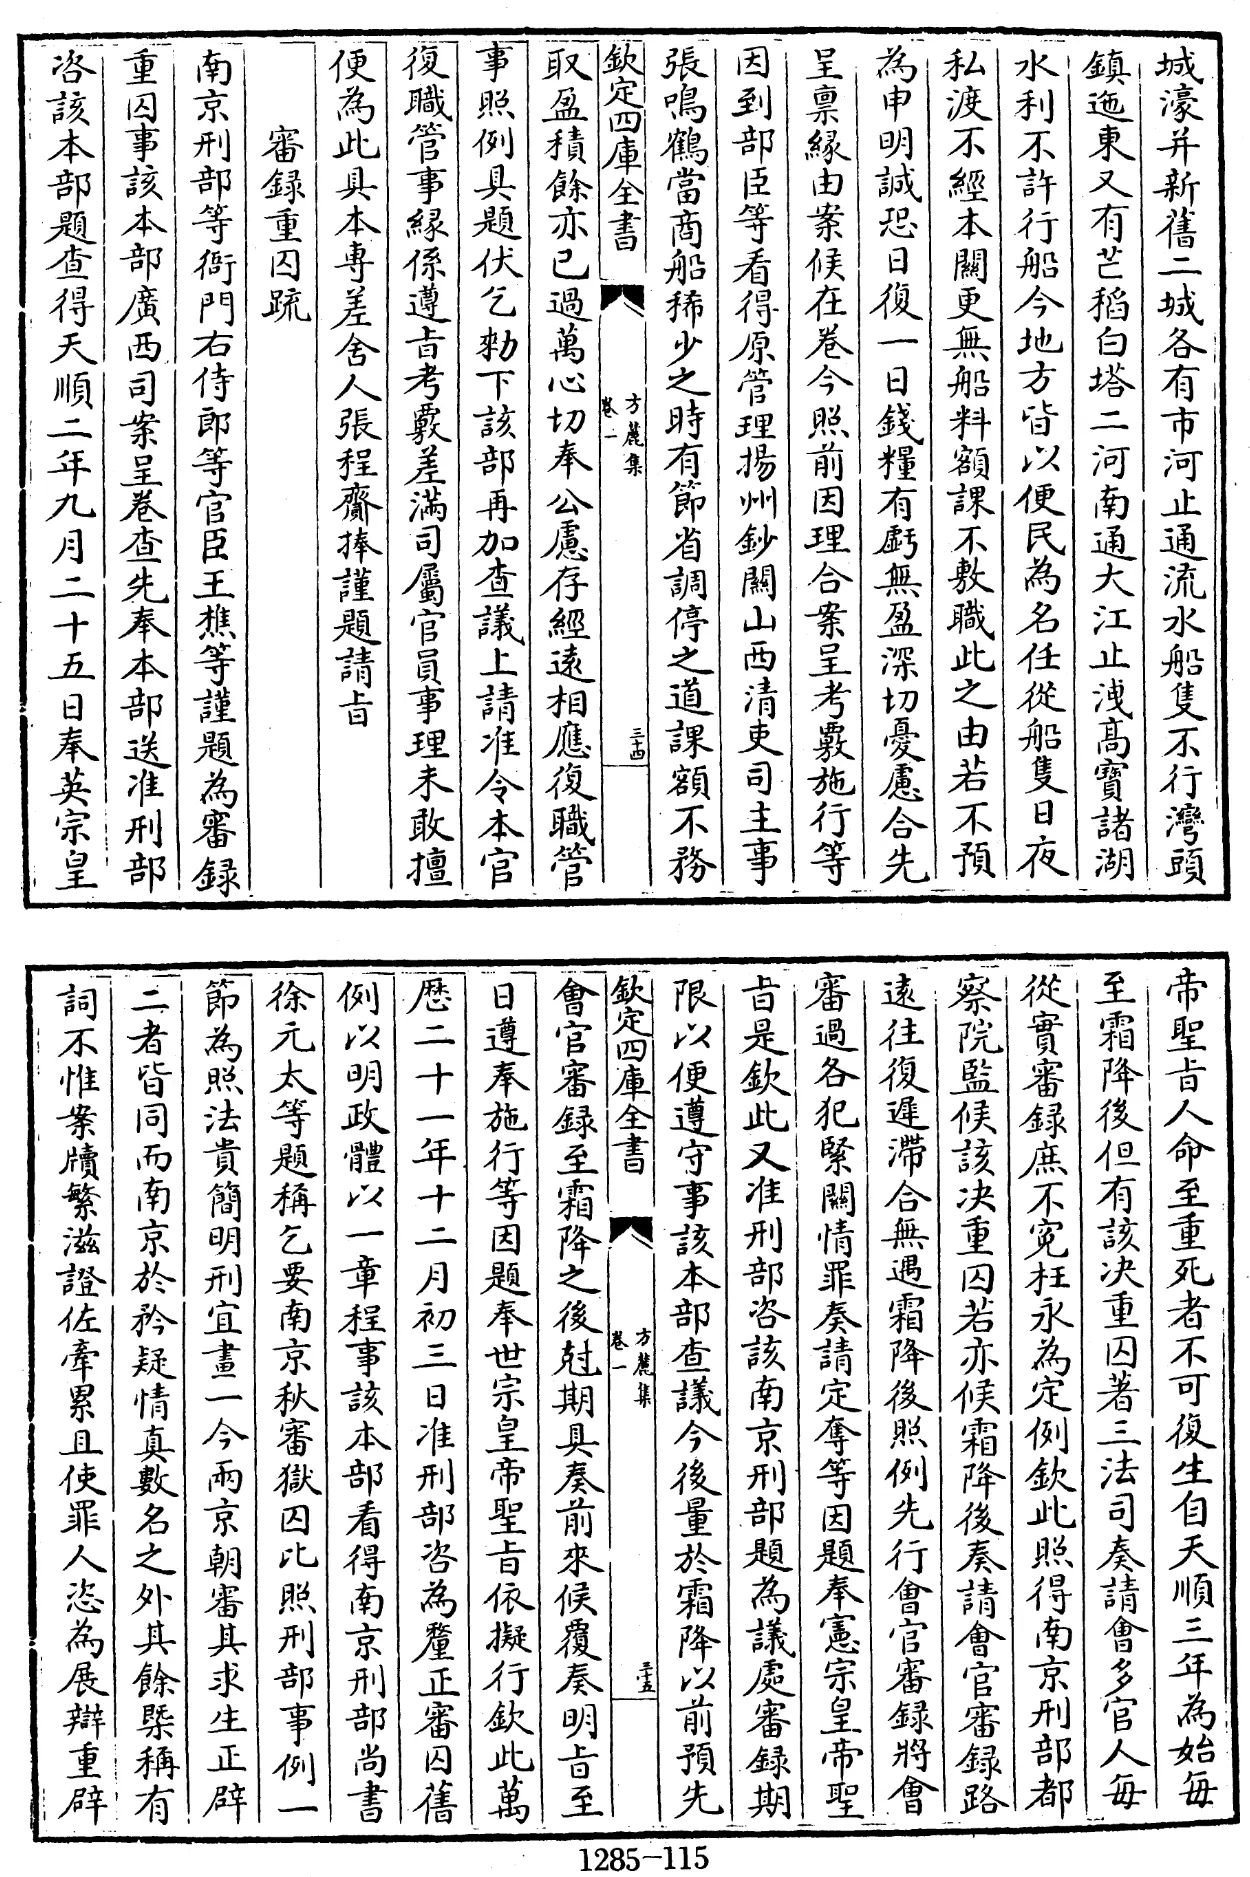 城濠并新舊二城各有市河止通流水船隻不行灣頭
鎮迤東又有芒稻白塔二河南通大江止洩髙寶諸湖
水利不許行船今地方皆以便民為名任從船隻日夜
私渡不經本關更無船料額課不敷職此之由若不預
為申明誠恐日復一日錢糧有虧無盈深切憂慮合先
呈禀緣由案候在卷今照前因理合案呈考覈施行等
因到部臣等看得原管理揚州鈔關山西清吏司主事
張鳴鶴當商船稀少之時有節省調停之道課額不務
欽定四庫全書
方麓集
卷一
三十四
取盈積餘亦已過萬心切奉公慮存經遠相應復職管
事照例具題伏乞勑下該部再加查議上請准令本官
復職管事緣係遵㫖考覈差滿司屬官員事理未敢擅
便為此具本專差舍人張程齎捧謹題請㫖
審録重囚疏
南京刑部等衙門右侍郎等官臣王樵等謹題為審録
重囚事該本部廣西司案呈卷查先奉本部送准刑部
咨該本部題查得天順二年九月二十五日奉英宗皇
帝聖㫖人命至重死者不可復生自天順三年為始毎
至霜降後但有該决重囚著三法司奏請會多官人毎
從實審録庶不寃枉永為定例欽此照得南京刑部都
察院監候該决重囚若亦候霜降後奏請會官審録路
遠往復遲滯合無遇霜降後照例先行會官審録將會
審過各犯緊關情罪奏請定奪等因題奉憲宗皇帝聖
㫖是欽此又准刑部咨該南京刑部題為議處審録期
限以便遵守事該本部查議今後量於霜降以前預先
欽定四庫全書
方麓集
卷一
三十五
會官審録至霜降之後尅期具奏前來候覆奏明㫖至
日遵奉施行等因題奉世宗皇帝聖㫖依擬行欽此萬
厯二十一年十二月初三日准刑部咨為釐正審囚舊
例以明政體以一章程事該本部看得南京刑部尚書
徐元太等題稱乞要南京秋審獄囚比照刑部事例一
節為照法貴簡明刑宜畫一今兩京朝審其求生正辟
二者皆同而南京於矜疑情真數名之外其餘槩稱有
詞不惟案牘繁滋證佐牽累且使罪人恣為展辯重辟
1285-115